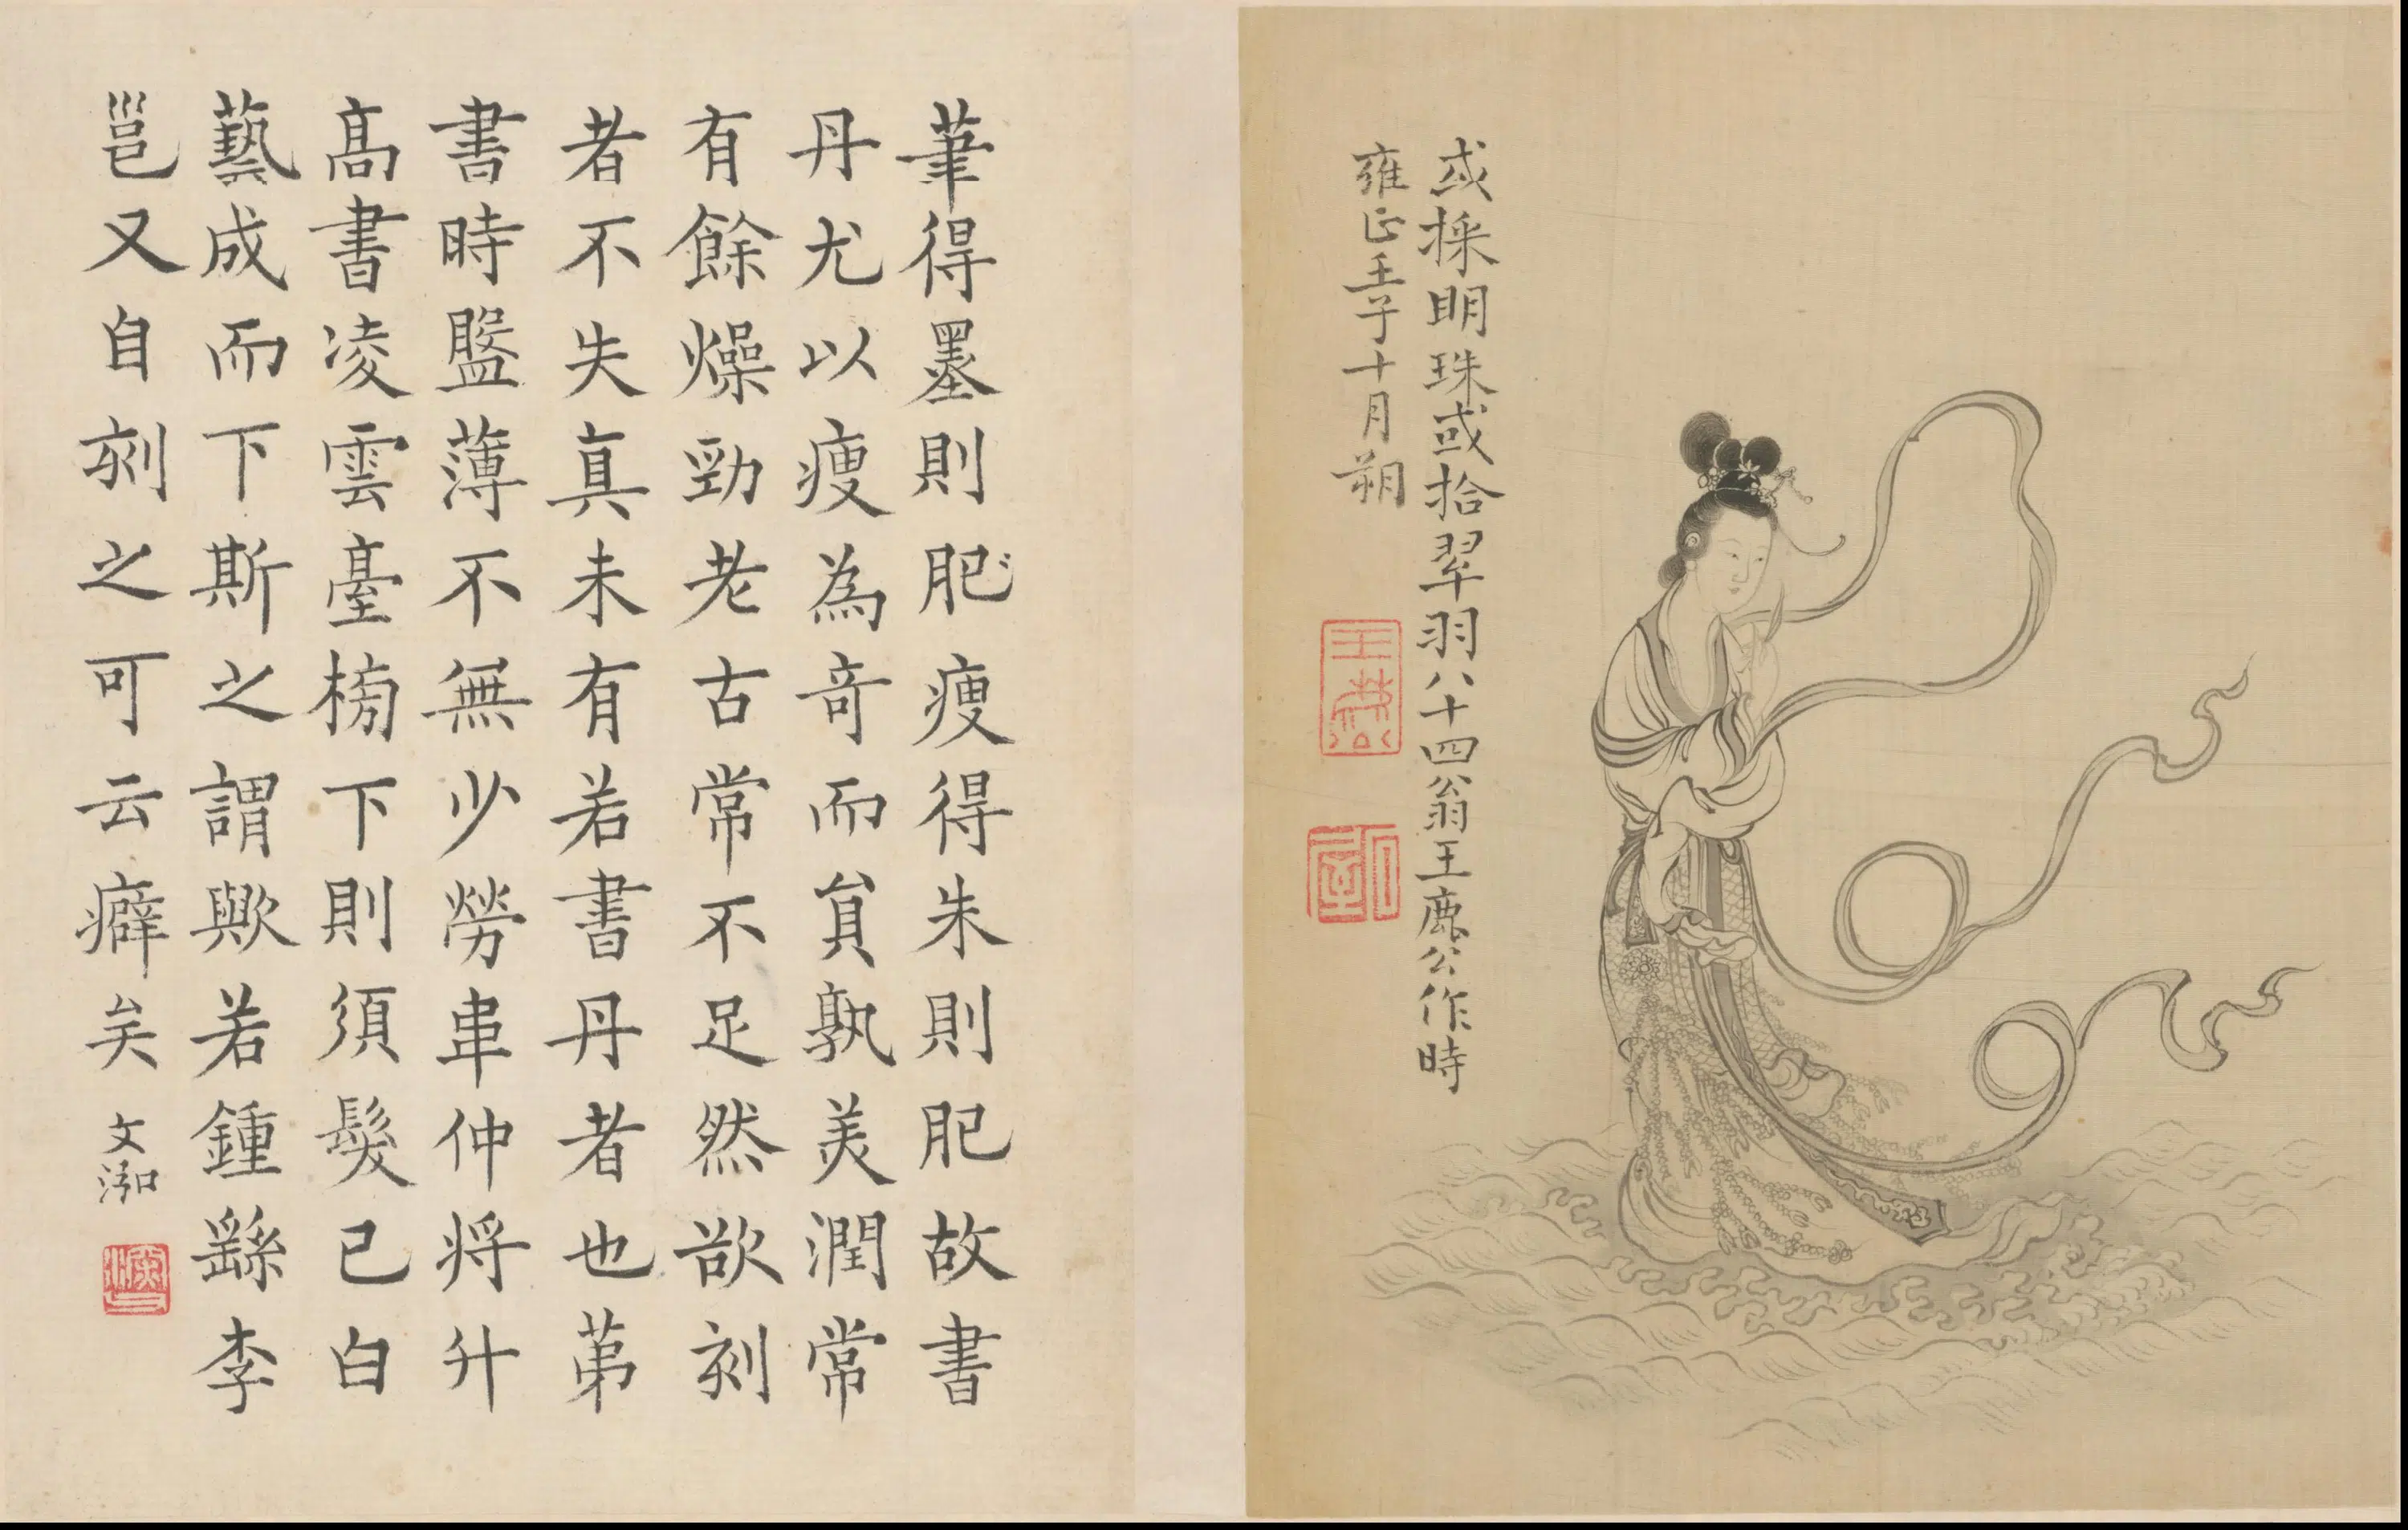 或採明珠或拾翠羽八十四翁王鹿公作時
雍正壬子十月朔
筆得墨則肥瘦得朱則肥故書
丹尤以瘦為奇而員孰美潤常
有餘燥勁老古常不足然欲刻
者不失真未有若書丹者也苐
書時盤薄不無少勞串仲將升
高書凌雲臺榜下則須髮已白
藝成而下斯之謂歟若鍾繇李
邕又自刻之可云癖矣
文泓